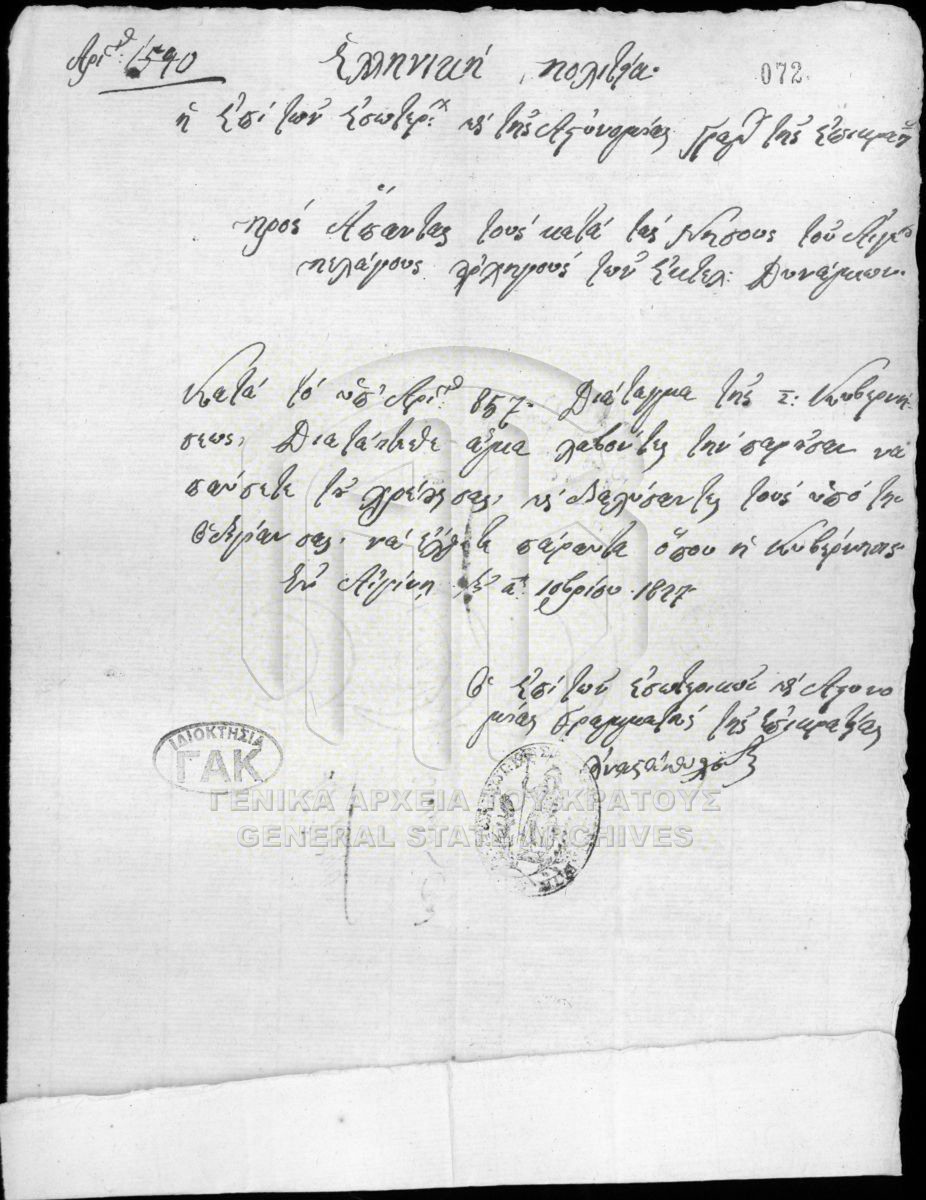 Αριθ: 1590
Ἑλληνική πολιτεία.
072.
ἡ Ἐπί τῶν Ἐσωτερ: καί τῆς Ἀστυνομίας Γραμ τῆς Ἐπικρατ
πρός Ἅπαντας τούς κατά τάς Νήσους τοῦ Αἰγαίου
πελάγους ἀρχηγούς τῶν Ἐκτελ: Δυνάμεων.
Κατά τό ὑπ' Αριθ: 857. Διάταγμα τῆς Σ: Κυβερνή-
σεως, Διατάττεσθε ἅμα λαβόντες τήν παροῦσαν νά
παύσετε τοῦ χρέους σας, καί διαλύσαντες τούς ὑπό τήν
ὁδηγίαν σας, νά ἔλθετε πάραυτα ὅπου ἡ Κυβέρνησις
Ἐν Αἰγίνῃ τῇ α: 10βρίου 1827
Ὁ Ἐπί τῶν Ἐσωτερικῶν καί Ἀστυνο
μίας Γραμματεύς τῆς Ἐπικρατείας
Αναστ
ΙΔΙΟΚΤΗΣΙΑ
ΓΑΚ
ΓΕΝΙΚΑ ΑΡΧΕΙΑ ΤΟΥ ΚΡΑΤΟΥΣ
GENERAL STATE ARCHIVES